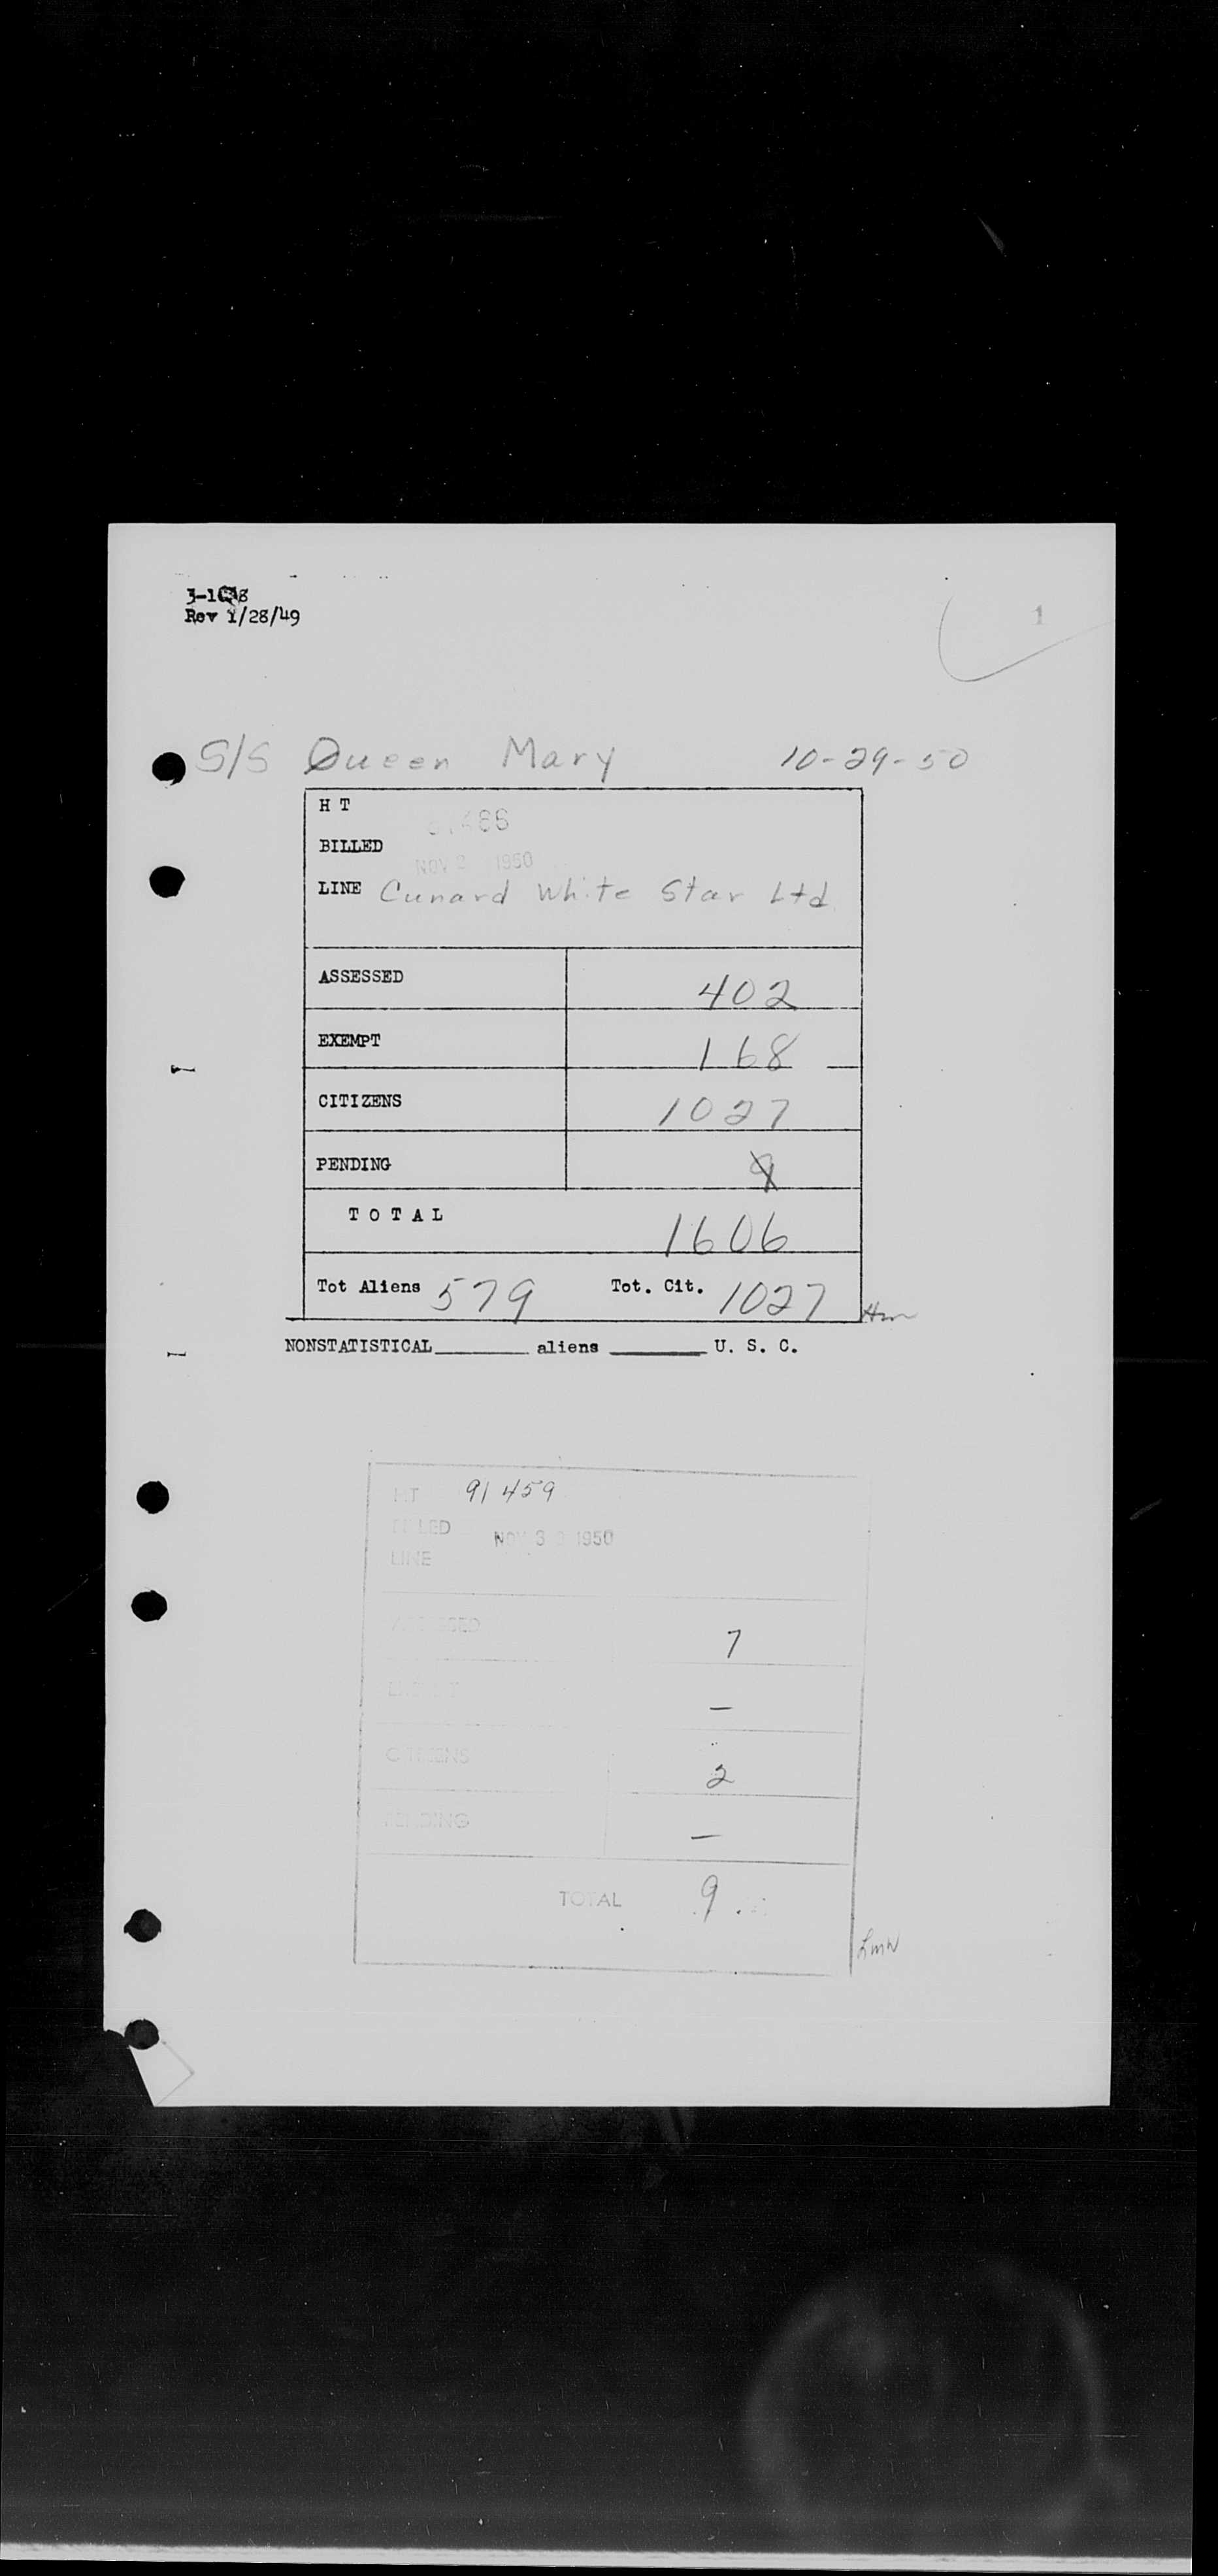 Rev 1/28/49
1
S/S Queen Mary 10-29-50
H T
BILLED
NOV 1950
LINE Cunard White Star Ltd.
ASSESSED 402
EXEMPT 168
CITIZENS 1027
PENDING 9
T O T A L 1606
Tot Aliens 579 Tot. Cit. 1027
NONSTATISTICAL________ aliens ________ U. S. C.
HT 91459
BILLED NOV 3 1950
LINE
ASSESSED 7
EXEMPT –
CITIZENS 2
PENDING –
TOTAL 9
LMW